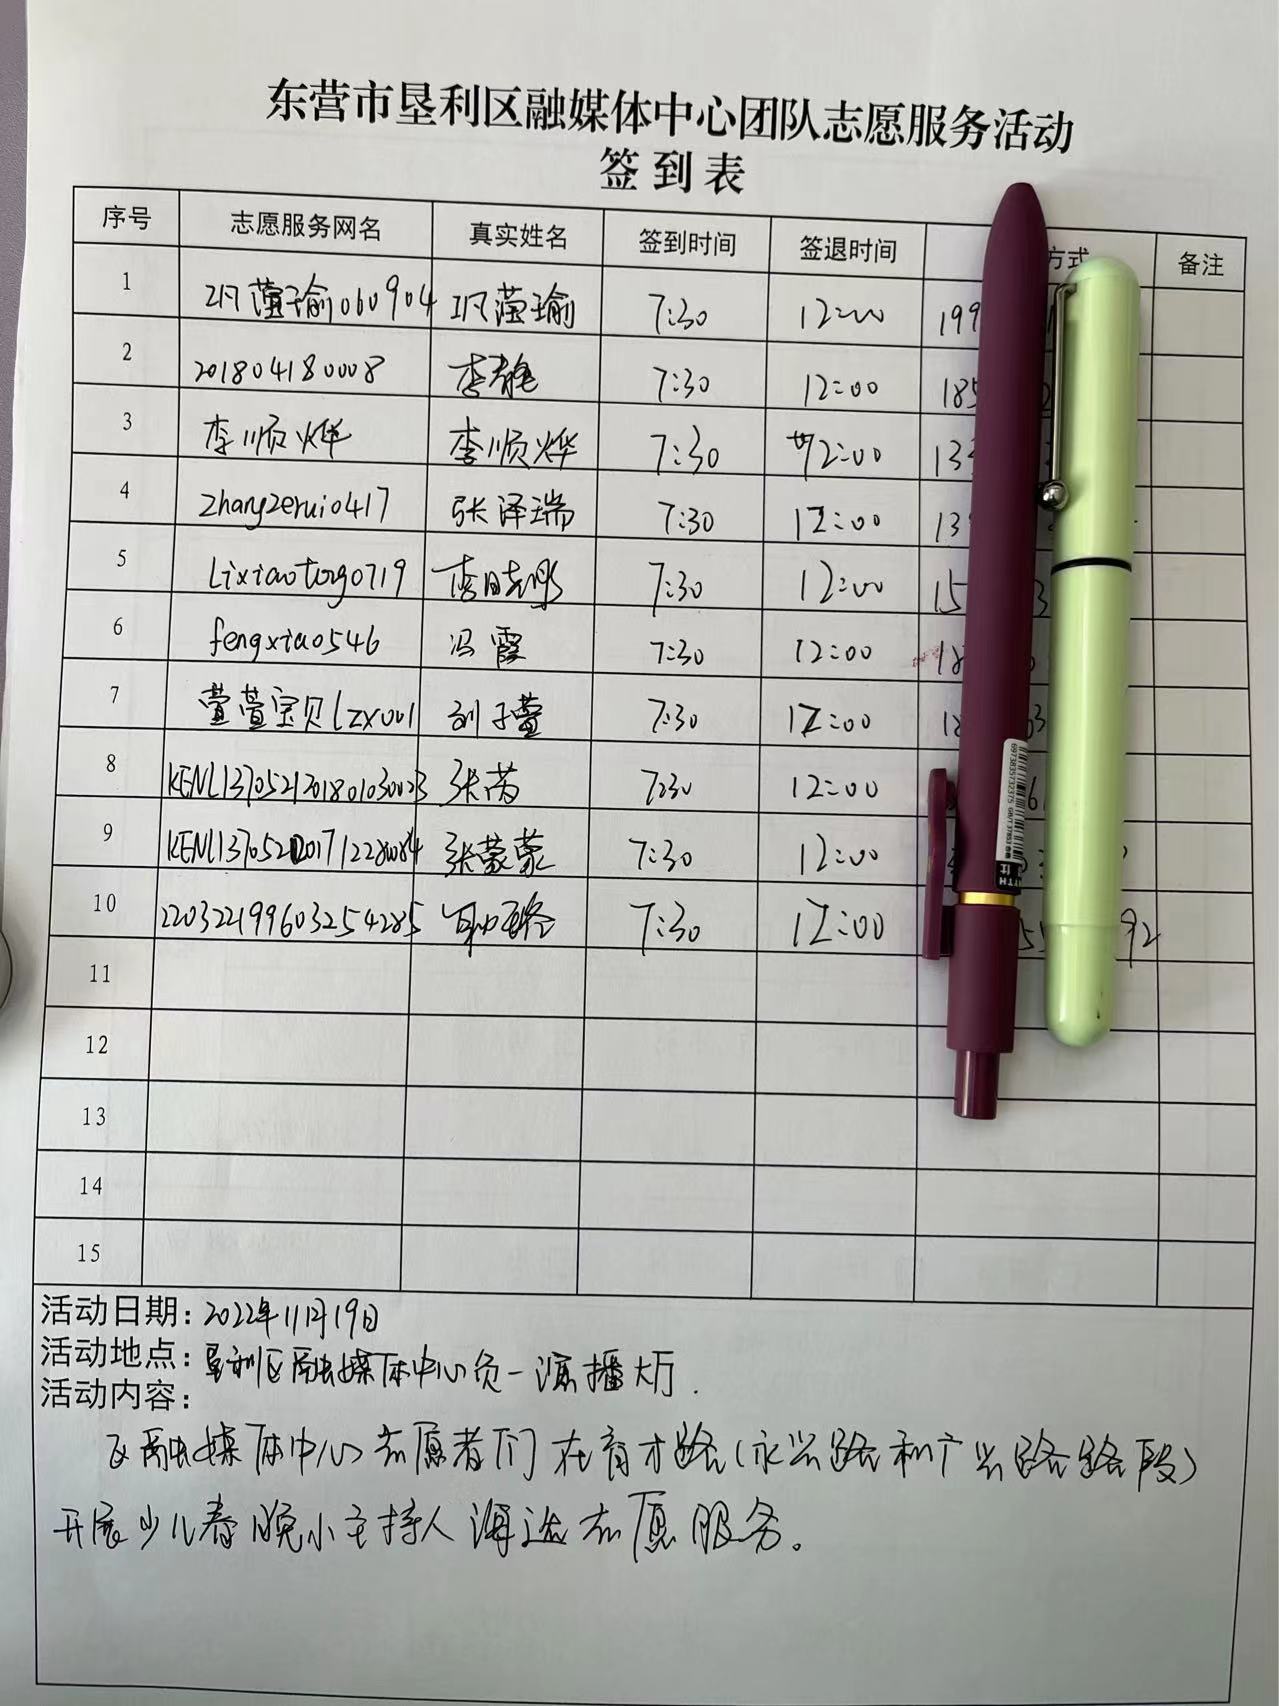 东营市垦利区融媒体中心团队志愿服务活动
签到表
序号 志愿服务网名 真实姓名 签到时间 签退时间 方式 备注
1 巩蓬瑜060904 巩蓬瑜 7:30 12:00 199
2 201804180008 李静 7:30 12:00 185
3 李顺烨 李顺烨 7:30 12:00 13
4 zhangzerui0417 张泽瑞 7:30 12:00 13
5 Lixiaotong0719 李晓彤 7:30 12:00 15 3
6 fengxiao546 冯霞 7:30 12:00 18
7 萱萱宝贝lzx001 刘子萱 7:30 12:00 18 3
8 KENL1370521201801030023 张芮 7:30 12:00 6
9 7:30 12:00
张蒙蒙
10 220322199603254285 7:30 12:00 5 92
11
12
13
14
15
活动日期：2022年11月19日
活动地点：垦利区融媒体中心负一演播大厅.
活动内容：
区融媒体中心志愿者们在育才路(永兴路和广兴路路段)
开展少儿春晚小主持人海选志愿服务。
6973835732375 GB/T37853